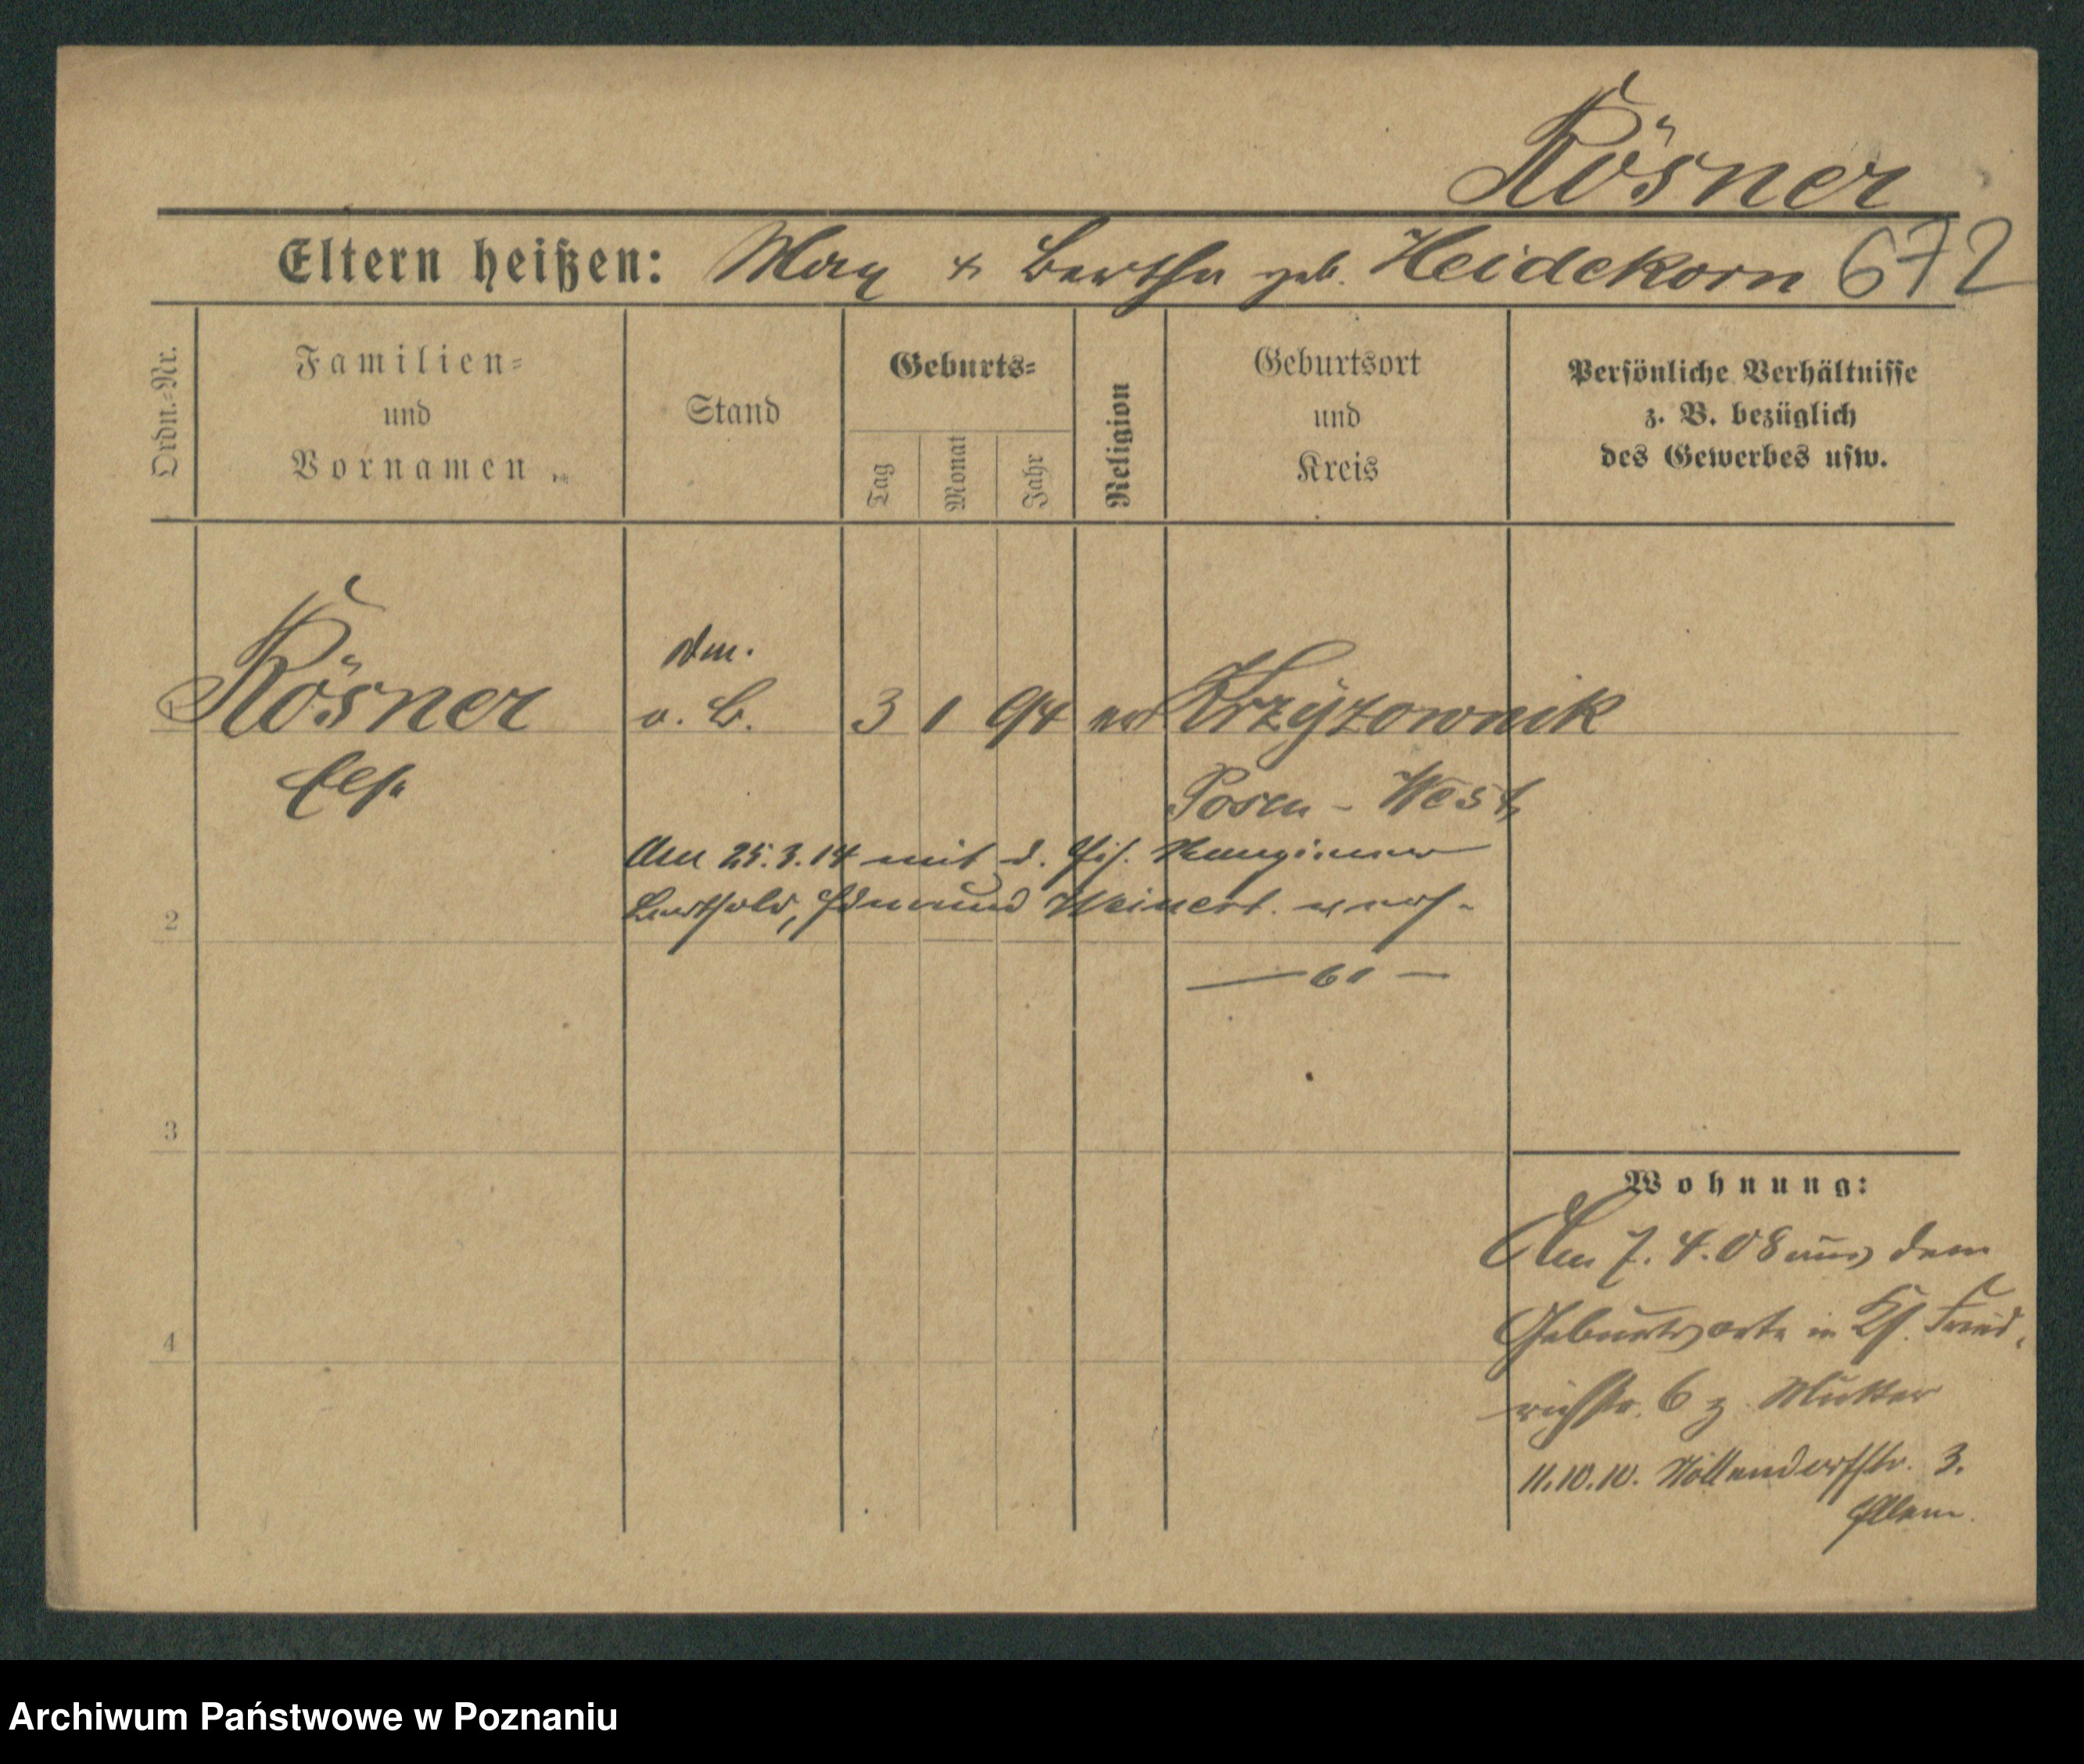 Rösner
Eltern heißen: Max & Bertha geb. Heidekorn 672
Ordn.-Nr.
Familien-
und
Vornamen
Stand
Geburts-
Tag
Monat
Jahr
Religion
Geburtsort
und
Kreis
Persönliche Verhältnisse
z. B. bezüglich
des Gewerbes usw.
1
Rösner
o. B.
3 1 94 ev
Krzyżownik
Posen - West
Am 25.3.14 mit d.
Berthold, Edmund Weinert. verh.
2
61
3
4
Wohnung:
Am 7. 4. 08 aus dem
Geburtsorte in Kl. Fried-
richstr. 6 z. Mutter
11.10.10. Nollendorfstr. 3.
Eltern.
Archiwum Państwowe w Poznaniu